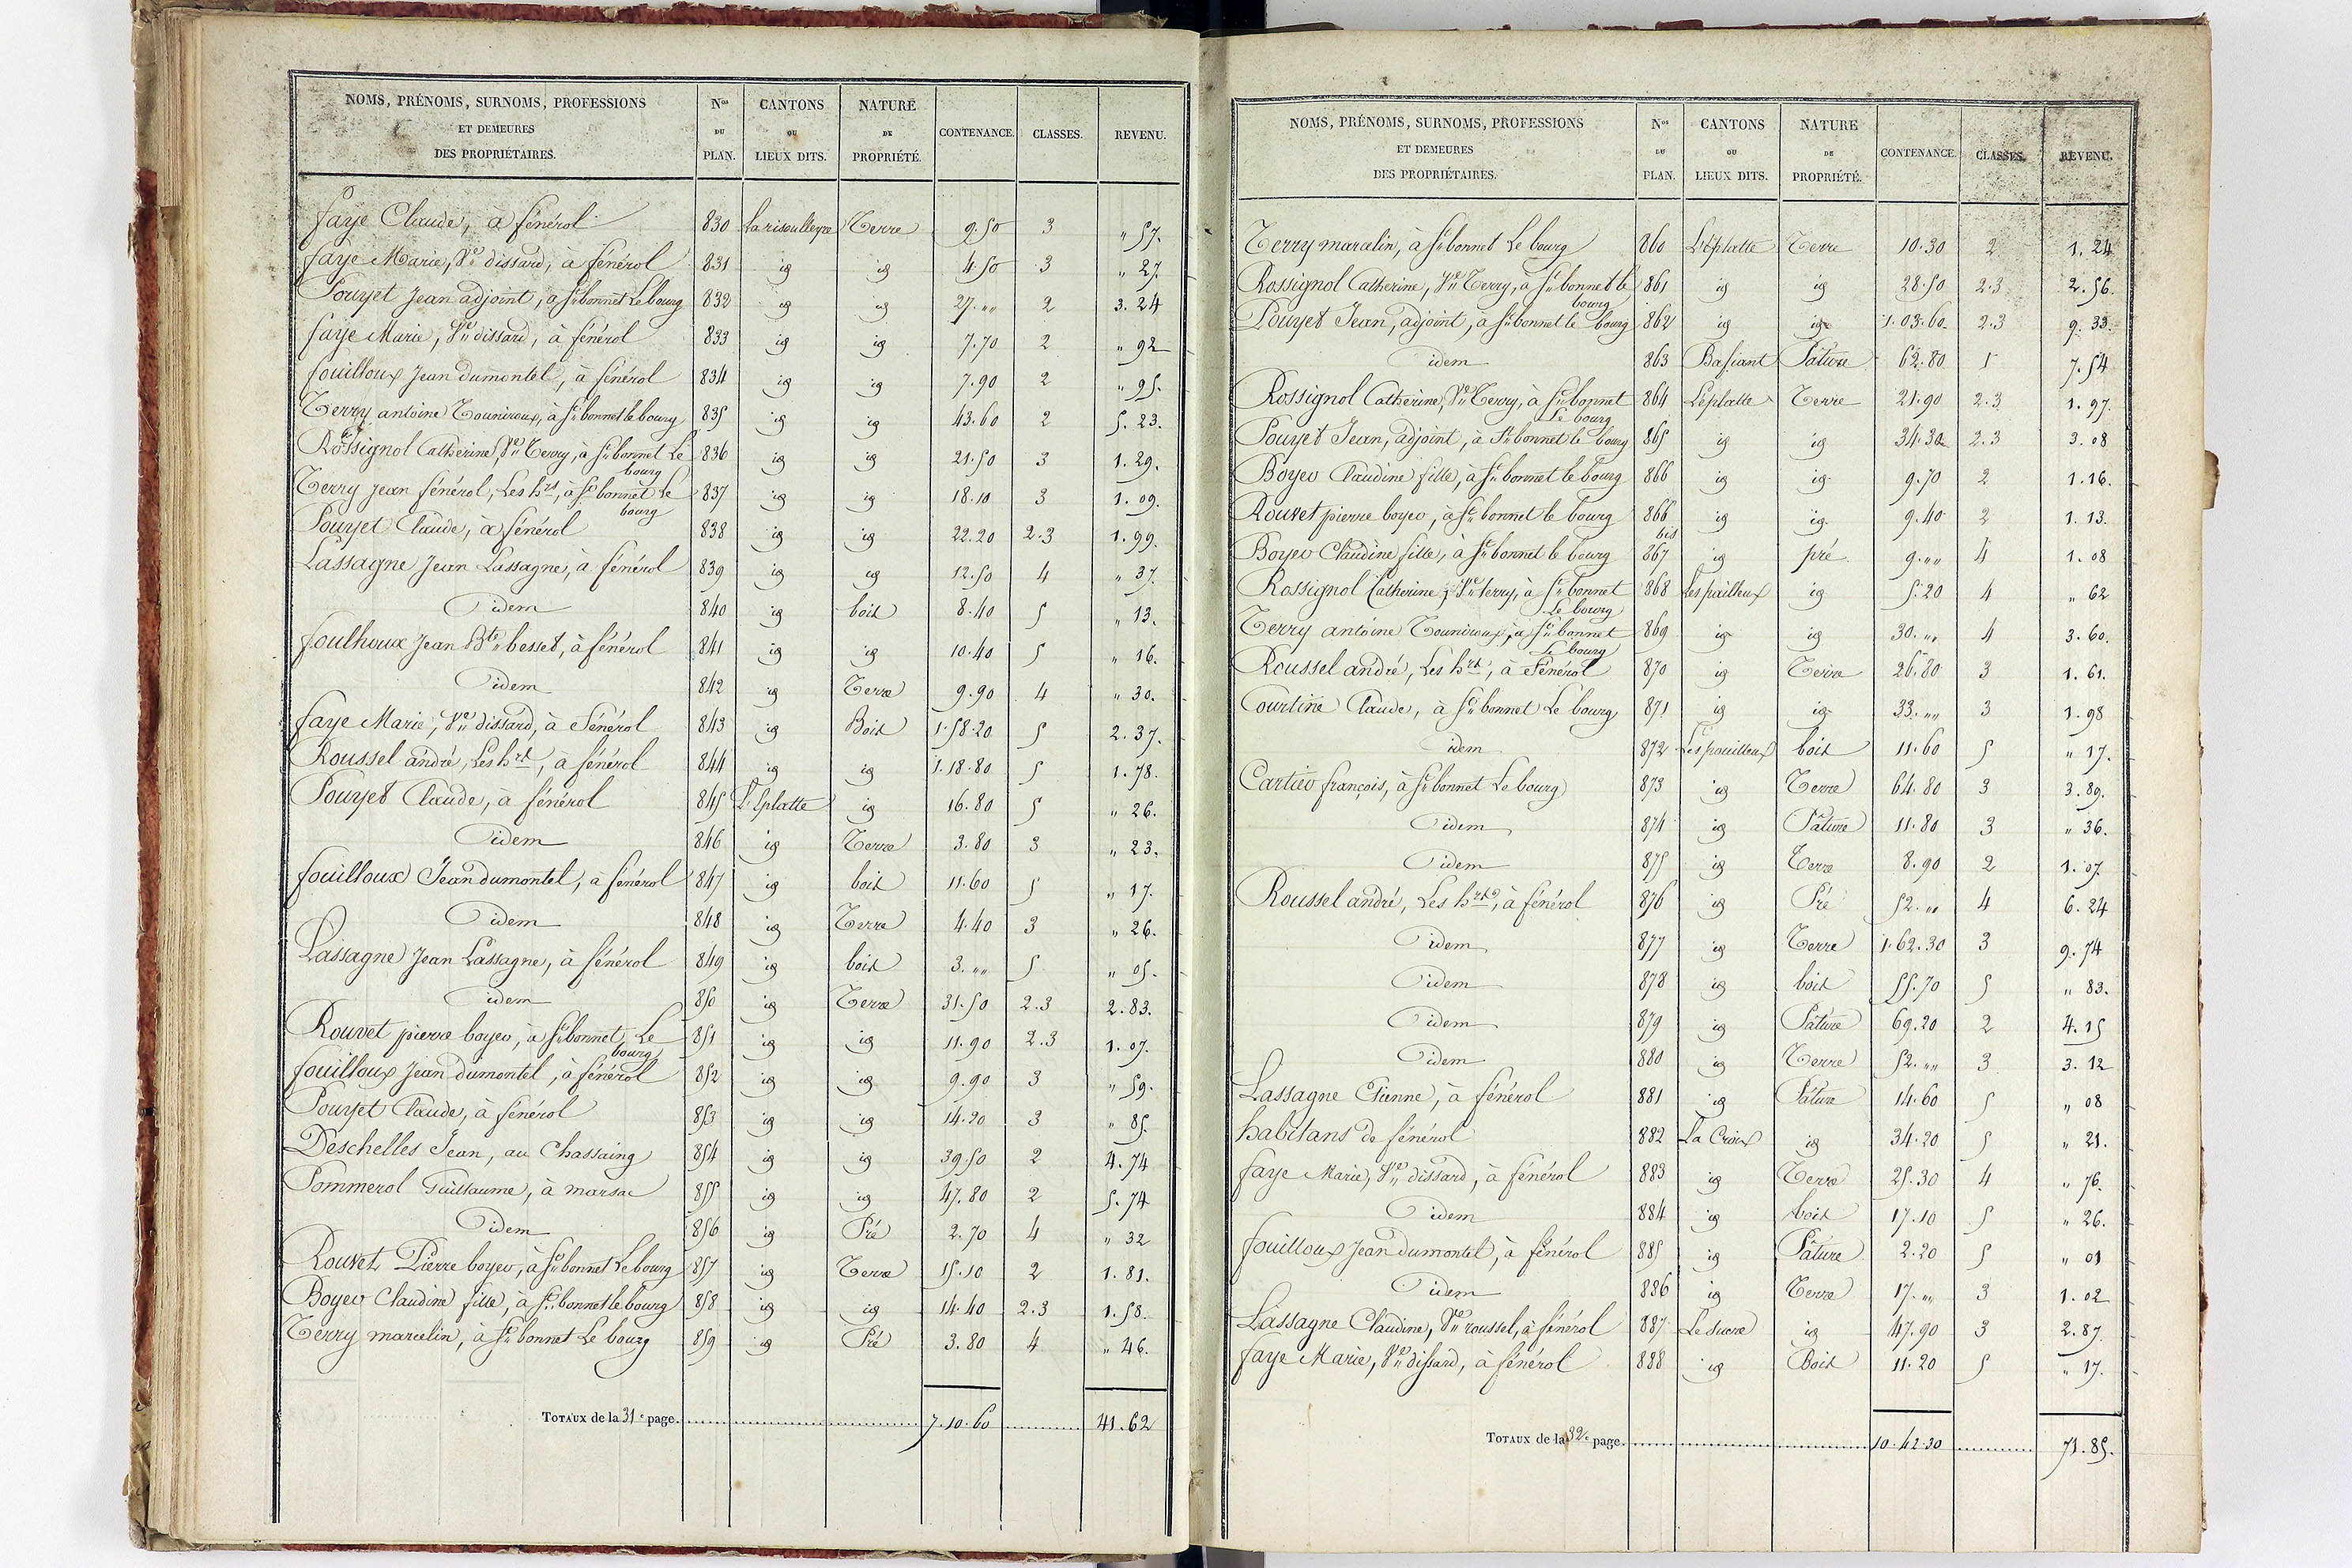 NOMS, PRÉNOMS, SURNOMS, PROFESSIONS ET DEMEURES DES PROPRIÉTAIRES. Nos DU PLAN. CANTONS OU LIEUX DITS. NATURE DE PROPRIÉTÉ. CONTENANCE. CLASSES. REVENU.
faye Claude, à fénérol 830 Terre 9.50 3 " 57.
faye Marie, Ve dissard, à fénérol 831 id id 4.50 3 " 27.
Pouyet Jean adjoint, à St bonnet Le bourg 832 id id 27. " 2 3.24
faye Marie, Ve dissard, à fénérol 833 id id 7.70 2 " 92
fouilloux Jean dumontel, à fénérol 834 id id 7.90 2 " 95.
Terry antoine Touniroux, à St bonnet le bourg 835 id id 43.60 2 5.23.
Rossignol Catherine, Ve Terry, à St bonnet Le bourg 836 id id 21.50 3 1.29.
Terry Jean fénérol, Les hrs, à St bonnet Le bourg 837 id id 18.10 3 1.09.
Pouyet Claude, à fénérol 838 id id 22.20 2.3 1.99.
Lassagne Jean Lassagne, à fénérol 839 id id 12.50 4 " 37.
idem 840 id bois 8.40 5 " 13.
foulhoux Jean Bte besset, à fénérol 841 id id 10.40 5 " 16.
idem 842 id Terre 9.90 4 " 30.
faye Marie, Ve dissard, à fénérol 843 id Bois 1.58.20 5 2.37.
Roussel andré, Les hrs, à fénérol 844 id id 1.18.80 5 1.78.
Pouyet Claude, à fénérol 845 L'Eplatte id 16.80 5 " 26.
idem 846 id Terre 3.80 3 " 23.
fouilloux Jean dumontel, à fénérol 847 id bois 11.60 5 " 17.
idem 848 id Terre 4.40 3 " 26.
Lassagne Jean Lassagne, à fénérol 849 id bois 3. " 5 " 05.
idem 850 id Terre 31.50 2.3 2.83.
Rouvet pierre boyer, à St bonnet Le bourg 851 id id 11.90 2.3 1.07.
fouilloux Jean dumontel, à fénérol 852 id id 9.90 3 " 59.
Pouyet Claude, à fénérol 853 id id 14.20 3 " 85.
Deschelles Jean, au Chassaing 854 id id 39.50 2 4.74
Pommerol Guillaume, à marsac 855 id id 47.80 2 5.74
idem 856 id Pré 2.70 4 " 32
Rouvet Pierre boyer, à St bonnet Le bourg 857 id Terre 15.10 2 1.81.
Boyer Claudine fille, à St bonnet le bourg 858 id id 14.40 2.3 1.58.
Terry marcelin, à St bonnet Le bourg 859 id Pré 3.80 4 " 46.
TOTAUX de la 31e page. 7.10.60 41.62
NOMS, PRÉNOMS, SURNOMS, PROFESSIONS ET DEMEURES DES PROPRIÉTAIRES. Nos DU PLAN. CANTONS OU LIEUX DITS. NATURE DE PROPRIÉTÉ. CONTENANCE. CLASSES. REVENU.
Terry marcelin, à St bonnet Le bourg 860 L'Eplatte Terre 10.30 2 1.24
Rossignol Catherine, Ve Terry, à St bonnet le bourg 861 id id 28.50 2.3 2.56.
Pouyet Jean, adjoint, à St bonnet le bourg 862 id id 1.03.60 2.3 9.33.
idem 863 Pâture 62.80 1 7.54
Rossignol Catherine, Ve Terry, à St bonnet Le bourg 864 L'éplatte Terre 21.90 2.3 1.97.
Pouyet Jean, adjoint, à St bonnet le bourg 865 id id 34.30 2.3 3.08
Boyer Claudine fille, à St bonnet le bourg 866 id id 9.70 2 1.16.
Rouvet pierre boyer, à St bonnet le bourg 866 bis id id 9.40 2 1.13.
Boyer Claudine fille, à St bonnet le bourg 867 id pré 9. " 4 1.08
Rossignol Catherine, Ve terry, à St bonnet Le bourg 868 Les pailleux id 5.20 4 " 62
Terry antoine Touniroux, à St bonnet Le bourg 869 id id 30. " 4 3.60.
Roussel andré, Les hrs, à Fénérol 870 id Terre 26.80 3 1.61.
Courtine Claude, à St bonnet Le bourg 871 id id 33. " 3 1.98
idem 872 Les pouilleux bois 11.60 5 " 17.
Cartier françois, à St bonnet Le bourg 873 id Terre 64.80 3 3.89.
idem 874 id Pâture 11.80 3 " 36.
idem 875 id Terre 8.90 2 1.07.
Roussel andré, Les hrs, à fénérol 876 id Pré 52. " 4 6.24
idem 877 id Terre 1.62.30 3 9.74
idem 878 id bois 55.70 5 " 83.
idem 879 id Pâture 69.20 2 4.15
idem 880 id Terre 52. " 3 3.12
Lassagne Etienne, à fénérol 881 id Pâture 14.60 5 " 08
habitans de fénérol 882 La Croix id 34.20 5 " 21.
faye Marie, Ve dissard, à fénérol 883 id Terre 25.30 4 " 76.
idem 884 id bois 17.10 5 " 26.
fouilloux Jean dumontel, à fénérol 885 id Pâture 2.20 5 " 01
idem 886 id Terre 17. " 3 1.02
Lassagne Claudine, Ve roussel, à fénérol 887 Le Sucre id 47.90 3 2.87.
faye Marie, Ve dissard, à fénérol 888 id Bois 11.20 5 " 17.
TOTAUX de la 32e page. 10.42.20 71.85.